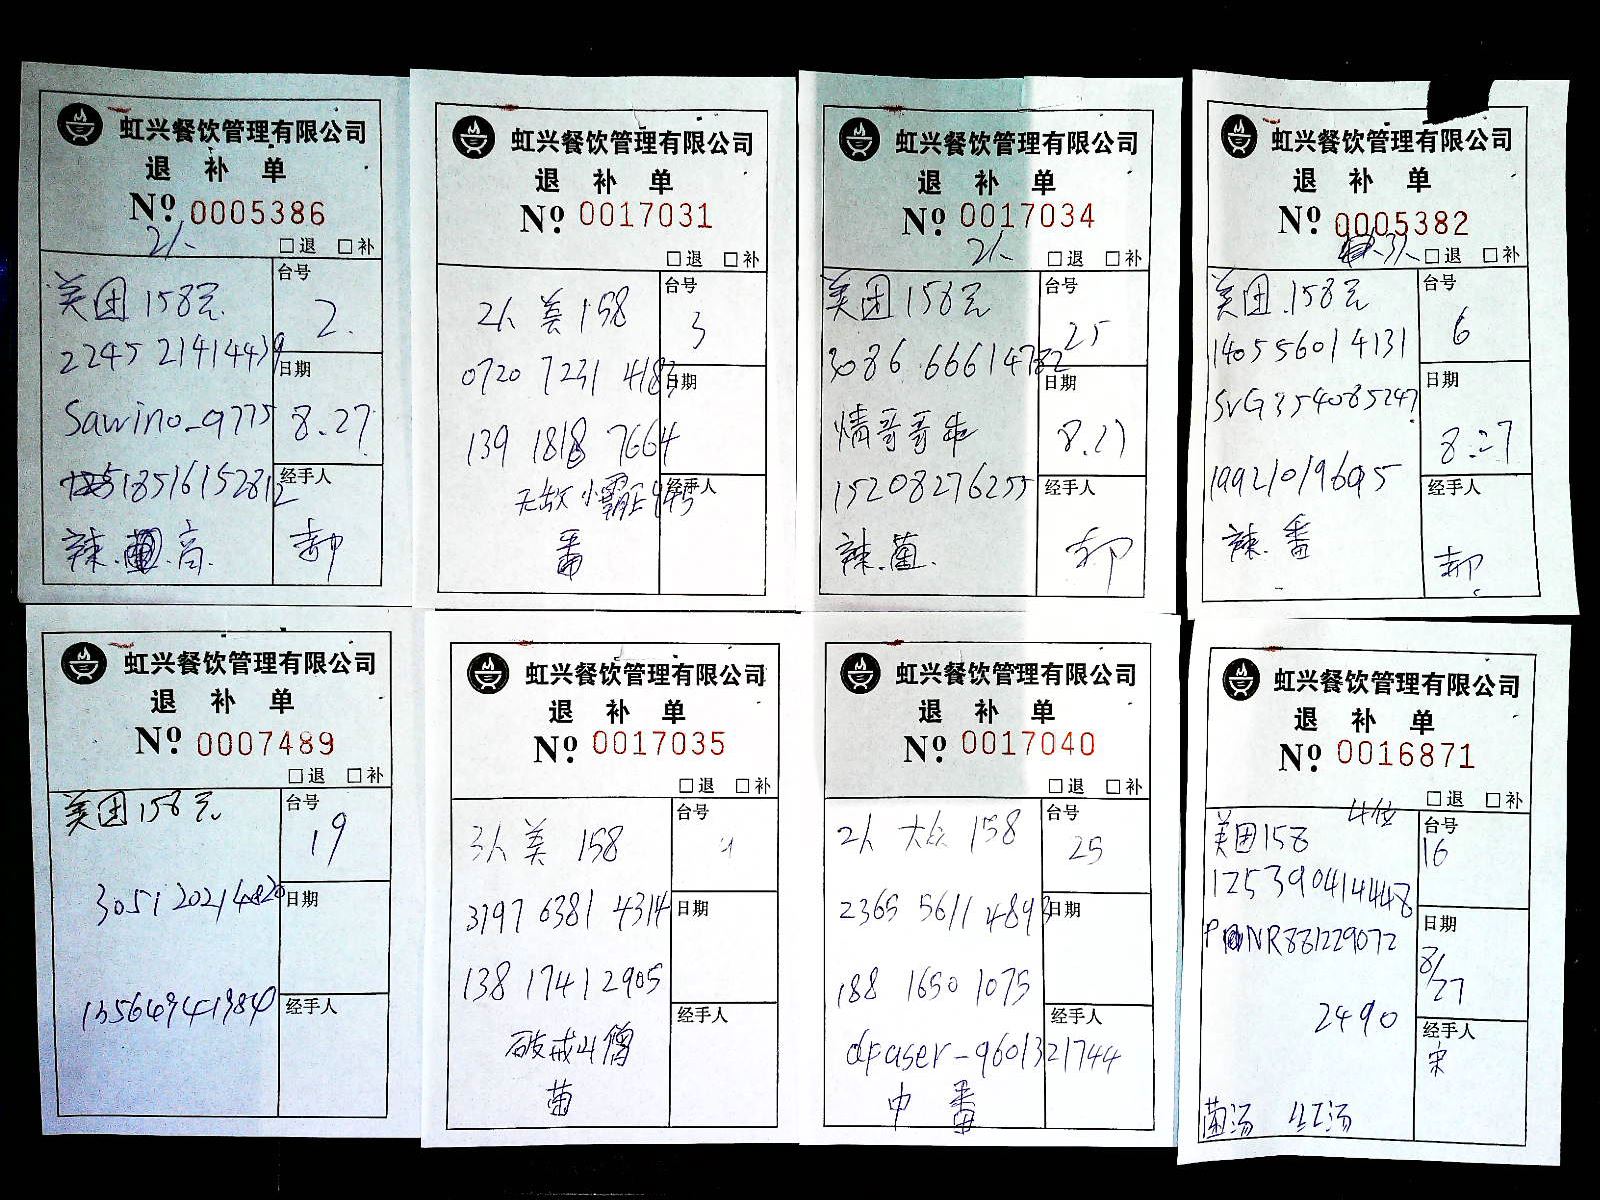 虹兴餐饮管理有限公司
退 补 单
Nº 0005386
2人
□退 □补
美团158元
台号
2.
2245 21414439
日期
Sawino_9775
8.27
18516152812
经手人
辣.菌.高.
郝
虹兴餐饮管理有限公司
退 补 单
Nº 0017031
□退 □补
2人 美 158
台号
3
0720 7231 4183
日期
139 1818 7664
经手人
无敌小霸王945
番
虹兴餐饮管理有限公司
退 补 单
Nº 0017034
2人
□退 □补
美团158元
台号
25
3086 66614782
日期
情哥哥
8.27
15208276255
经手人
辣.菌.
郝
虹兴餐饮管理有限公司
退 补 单
Nº 0005382
3人
□退 □补
美团.158元
台号
6
140556014131
日期
SVG354085247
8.27
19921019695
经手人
辣.番
郝
虹兴餐饮管理有限公司
退 补 单
Nº 0007489
□退 □补
美团158元
台号
19
3051 20214820
日期
经手人
虹兴餐饮管理有限公司
退 补 单
Nº 0017035
□退 □补
3人 美 158
台号
3197 6381 4314
日期
138 1741 2905
经手人
破戒 僧
菌
虹兴餐饮管理有限公司
退 补 单
Nº 0017040
□退 □补
2人 大众 158
台号
25
2365 5611 4893
日期
188 1650 1075
经手人
dpaser-9601321744
中 番
虹兴餐饮管理有限公司
退 补 单
Nº 0016871
□退 □补
4位
美团158
台号
16
125390414448
日期
NR881229072
8/27
2490
经手人
宋
菌汤 红汤